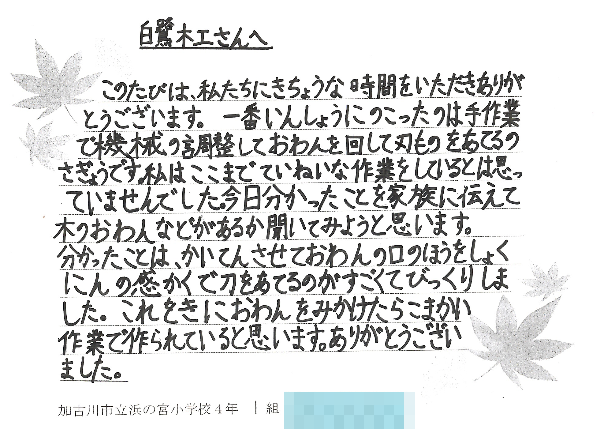 白鷺木工さんへ
このたびは、私たちにきちょうな時間をいただきありが
とうございます。一番いんしょうにのこったのは手作業
で機械の調整しておわんを回して刃ものをあてるの
さぎょうです。私はここまでていねいな作業をしているとは思っ
ていませんでした今日分かったことを家族に伝えて
木のおわんなどがあるか聞いてみようと思います。
分かったことは、かいてんさせておわんの口のほうをしょく
にんの感かくで刀をあてるのがすごくてびっくりしま
した。これをきにおわんをみかけたらこまかい
作業で作られていると思います。ありがとうござい
ました。
加古川市立浜の宮小学校4年 1組